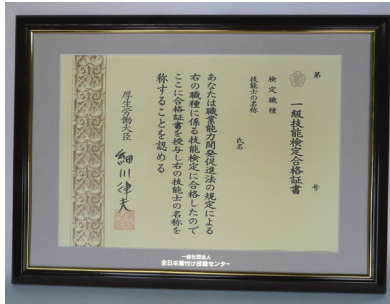 第 号
一級技能検定合格証書
検定職種
技能士の名称
氏名
あなたは職業能力開発促進法の規定による
右の職種に係る技能検定に合格したので
ここに合格証書を授与し右の技能士の名称を
称することを認める
厚生労働大臣
細川律夫
一般社団法人
全日本着付け技能センター